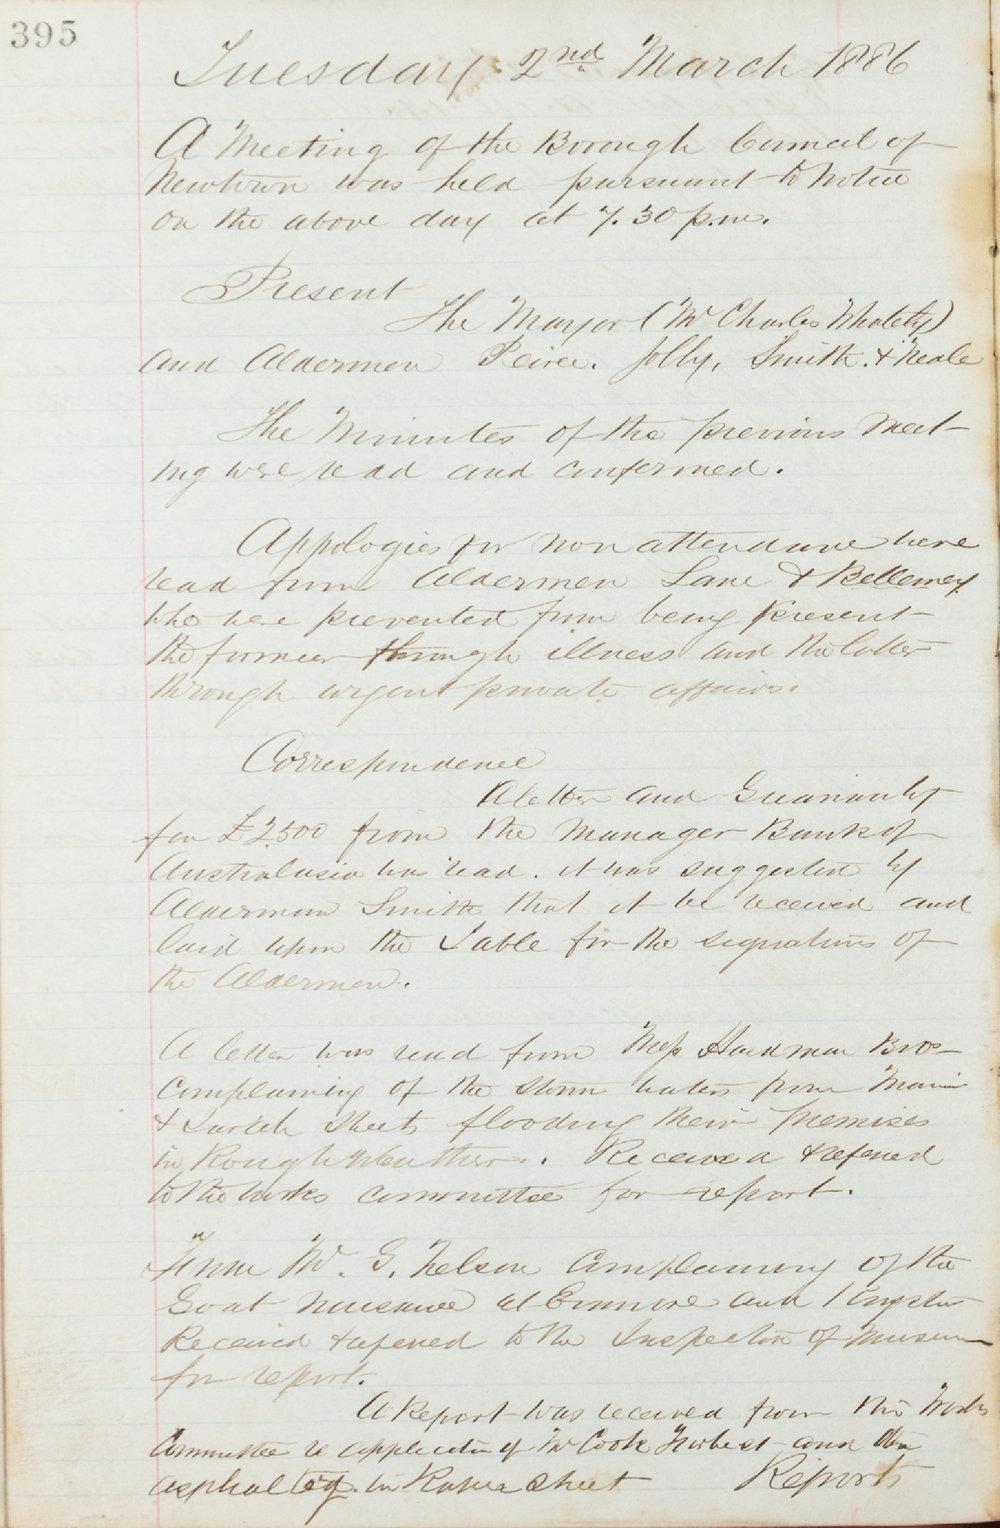 395
Tuesday 2nd March 1886
A Meeting of the Borough Council of
Newtown was held pursuant to notice
on the above day at 7.30 p.m.
Present
The Mayor (Mr Charles Whately)
and Aldermen Peirce. Jolly, Smith. & Neale
The Minutes of the previous Meet-
ing were read and confirmed.
Appologies for non attendance were
read from Aldermen Lane & Bellemey
who were prevented from being present
the former through illness and the latter
through urgent private affairs.
Correspondence
A letter and Guaranty
for £2500 from the Manager Bank of
Australasia was read. it was suggested by
Alderman Smith that it be received and
laid upon the Table for the signatures of
the Aldermen.
A letter was read from Mess Hardman Bros
complaining of the storm waters from
& Sarah Streets flooding their premises
in Rough Weather. Received & refered
to the works committee for report.
From Mr. G. Nelson Complaining of the
Goat nuisance at Enmore and Kingston
Received & refered to the Inspector of
for report.
A Report was received from the Works
Committee re application of Mr Cook and the
asphalting in Raper Street Reports